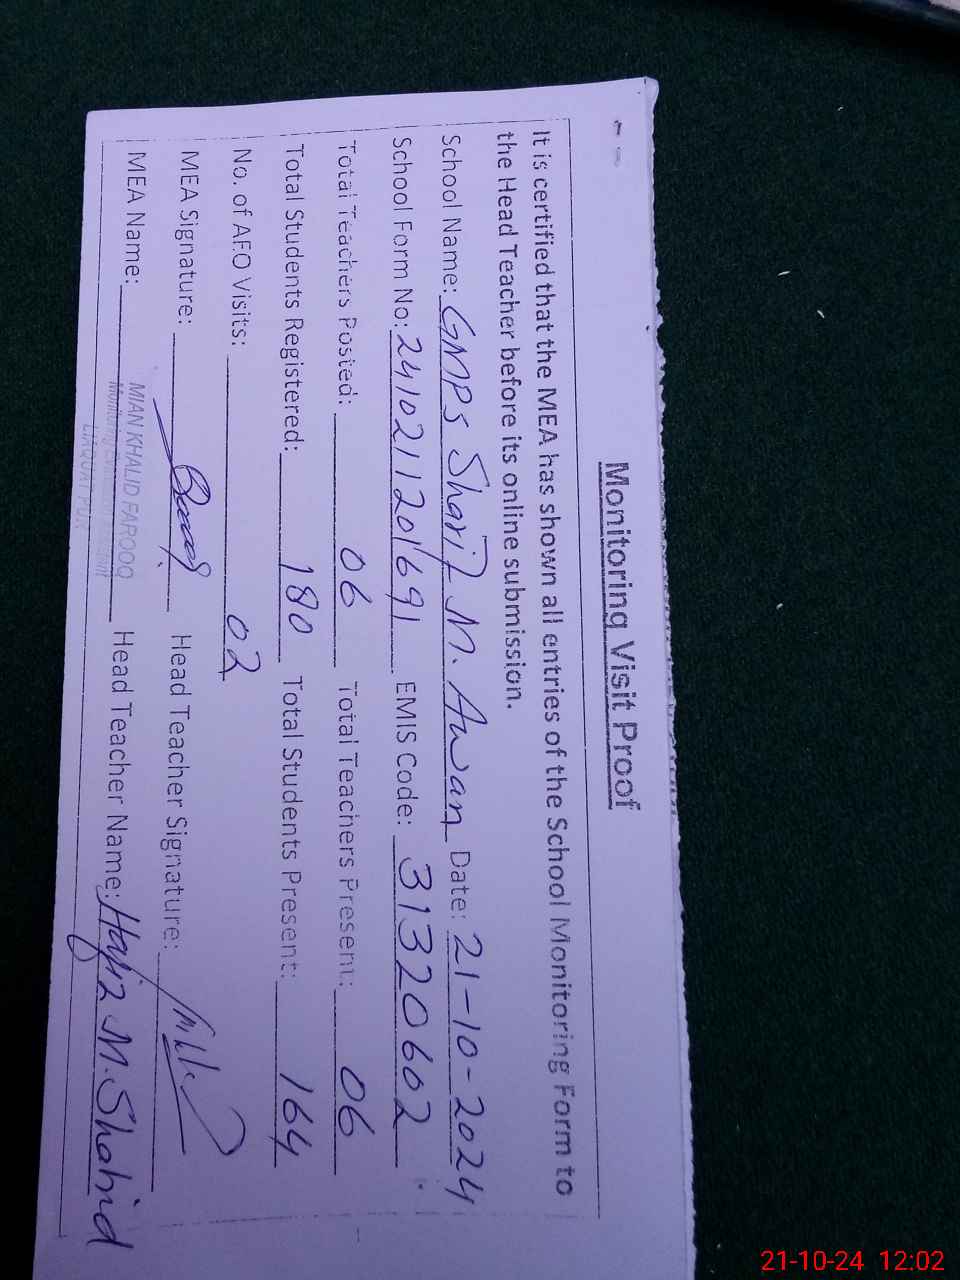 Monitoring Visit Proof
It is certified that the MEA has shown all entries of the School Monitoring Form to
the Head Teacher before its online submission.
School Name: GMPS Sharif M. Awan Date: 21-10-2024
School Form No: 2410211201691 EMIS Code: 31320602
Total Teachers Posted: 06 Total Teachers Present: 06
Total Students Registered: 180 Total Students Present: 164
No. of AEO Visits: 02
MEA Signature: Head Teacher Signature:
MEA Name: MIAN KHALID FAROOQ Head Teacher Name: Hafiz M. Shahid
Monitoring Evaluation
LIAQUAT PUR
21-10-24 12:02